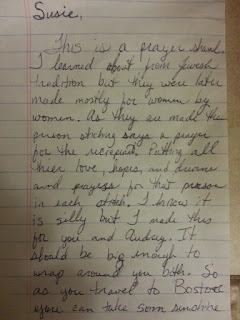 Susie,
This is a prayer shawl.
I learned about from Jewish
tradition but they were later
made mostly for women by
women. As they are made the
person stiching says a prayer
for the recipient. Putting all
thier love, hopes, and dreams
and prayers for that person
in each stitch. I know it
is silly but I made this
for you and Audrey. It
should be big enough to
wrap around you both. So
as you travel to Boston
you can take som sunshine